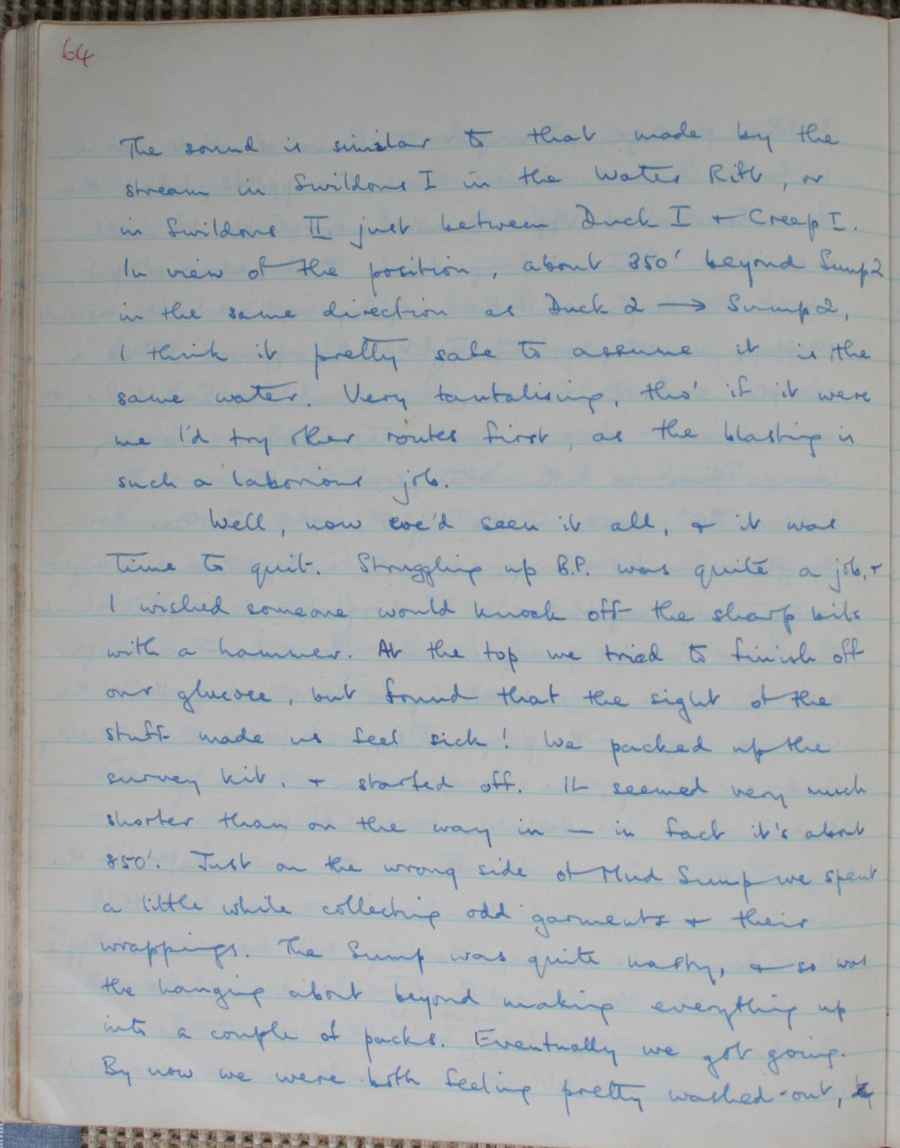 64
The sound is similar to that made by the
stream in Swildons I in the Water Rift, or
in Swildons II just between Duck I + Creep I.
In view of the position, about 350' beyond Sump 2
in the same direction as Duck 2 → Sump 2,
I think it pretty safe to assume it is the
same water. Very tantalising, tho' if it were
me I'd try other routes first, as the blasting is
such a laborious job.
Well, now we'd seen it all, + it was
time to quit. Struggling up B.P. was quite a job, +
I wished someone would knock off the sharp bits
with a hammer. At the top we tried to finish off
our glucose, but found that the sight of the
stuff made us feel sick! We packed up the
survey kit, + started off. It seemed very much
shorter than on the way in — in fact it's about
850'. Just on the wrong side of Mud Sump we spent
a little while collecting odd garments + their
wrappings. The Sump was quite nasty, + so was
the hanging about beyond making everything up
into a couple of packs. Eventually we got going.
By now we were both feeling pretty washed-out,